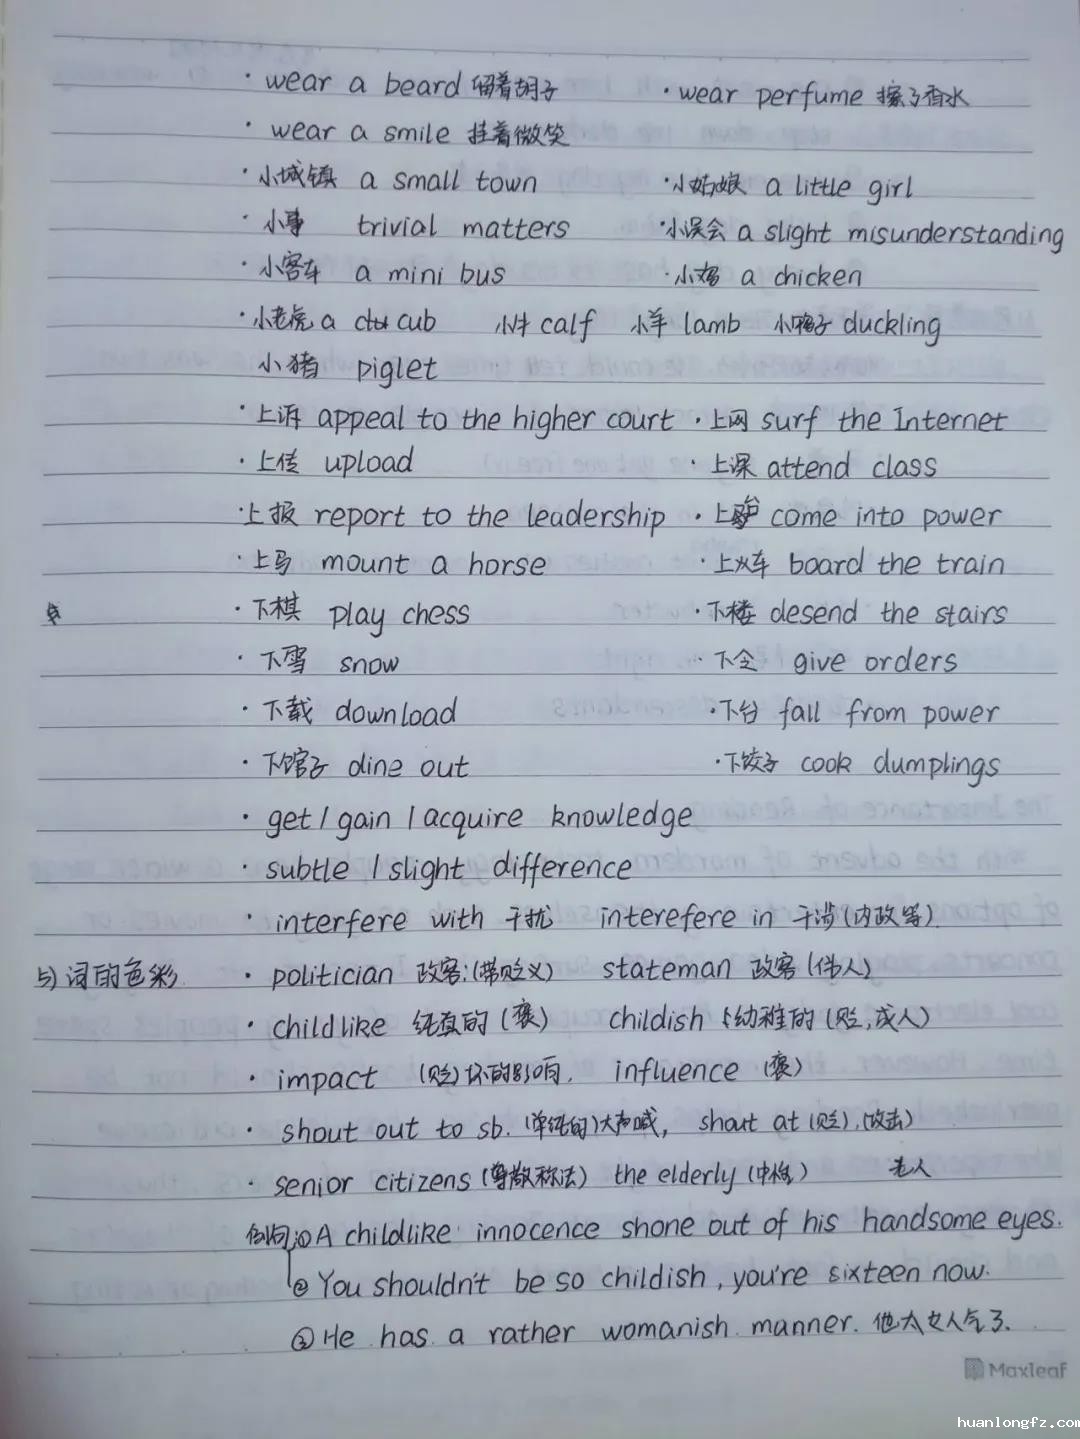 · wear a beard 留着胡子 · wear perfume 擦了香水
· wear a smile 挂着微笑
· 小城镇 a small town · 小姑娘 a little girl
· 小事 trivial matters · 小误会 a slight misunderstanding
· 小客车 a mini bus · 小鸡 a chicken
· 小老虎 a cub 小牛 calf 小羊 lamb 小鸭子 duckling
小猪 piglet
· 上诉 appeal to the higher court · 上网 surf the Internet
· 上传 upload · 上课 attend class
· 上报 report to the leadership · 上台 come into power
· 上马 mount a horse · 上火车 board the train
· 下棋 play chess · 下楼 desend the stairs
· 下雪 snow · 下令 give orders
· 下载 download · 下台 fall from power
· 下馆子 dine out · 下饺子 cook dumplings
· get / gain / acquire knowledge
· subtle / slight difference
· interfere with 干扰 interefere in 干涉(内政等)
5) 词的色彩 · politician 政客:(带贬义) stateman 政客(伟人)
· childlike 纯真的 (褒) childish 幼稚的 (贬,成人)
· impact (贬)坏的影响. influence (褒)
· shout out to sb. (单纯的)大声喊, shout at (贬).(攻击)
· senior citizens (尊敬称法) the elderly (中性) 老人
例句:① A childlike innocence shone out of his handsome eyes.
② You shouldn't be so childish, you're sixteen now.
② He has a rather womanish manner. 他太女人气了.
Maxleaf
huanlongfz.com